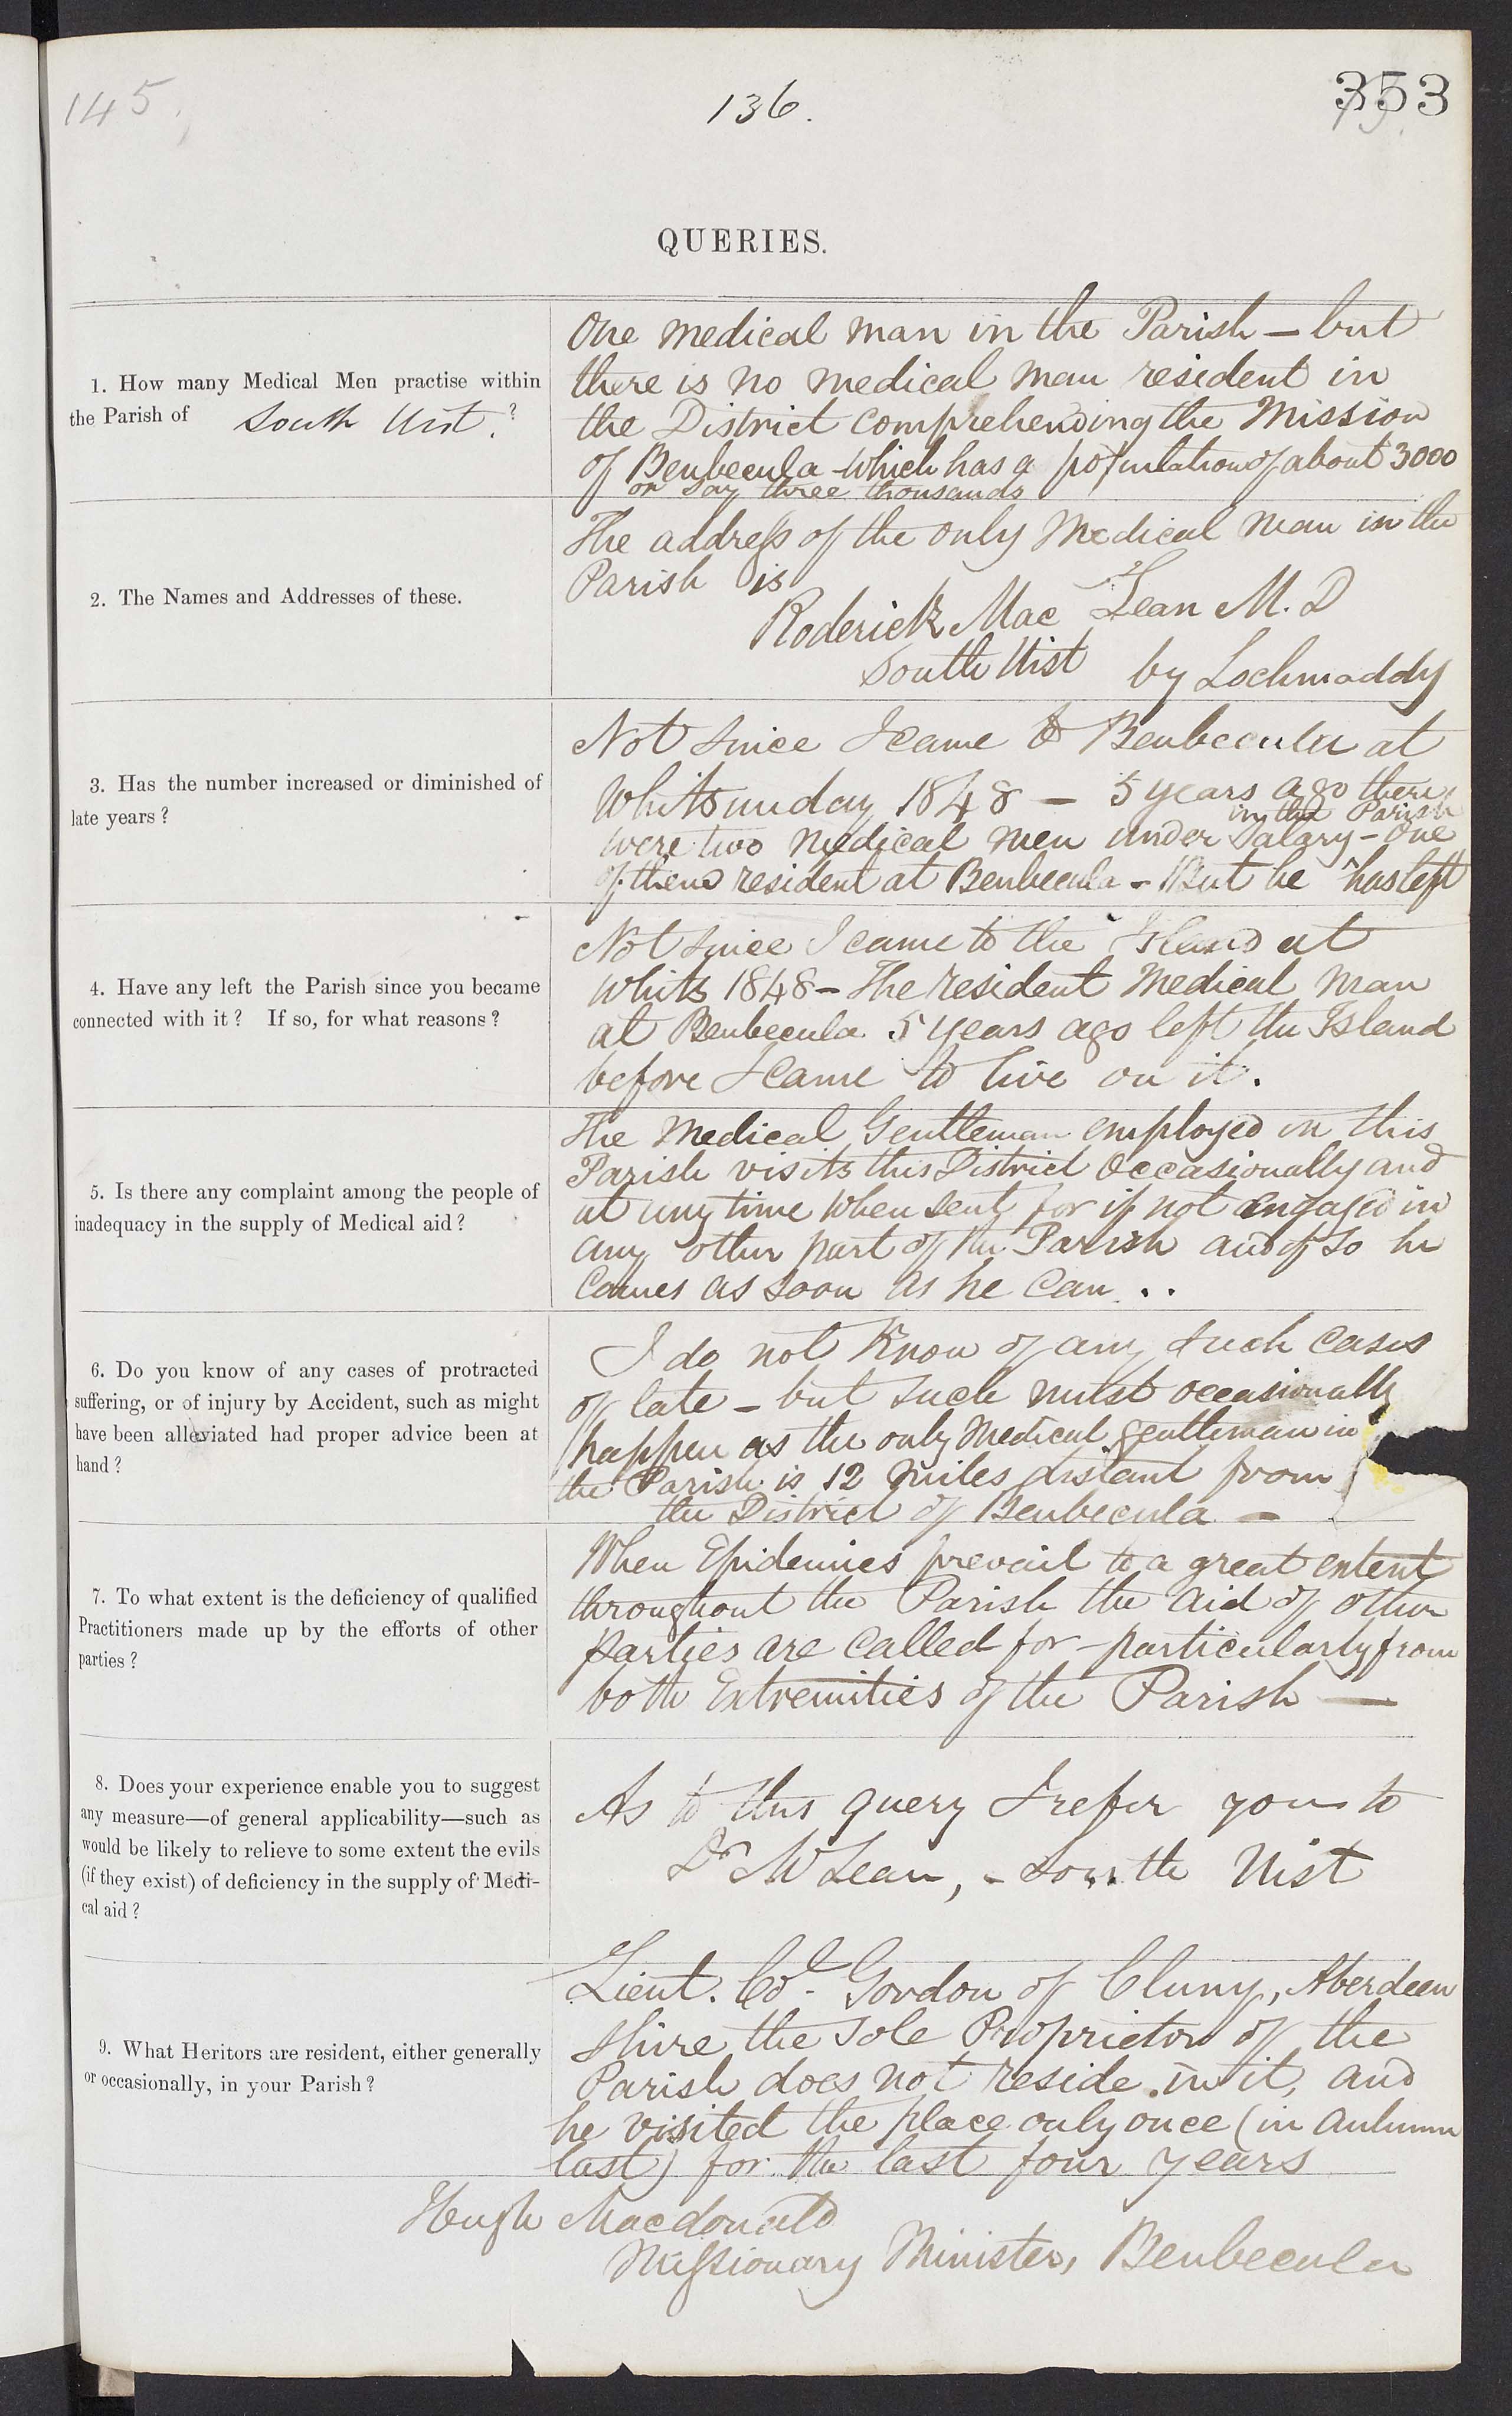 145.
136.
353
QUERIES.
1. How many Medical Men practise within
the Parish of South Uist.?
One medical man in the Parish – but
there is no medical man resident in
the District comprehending the Mission
of Benbecula which has a population of about 3000
or say three thousands
2. The Names and Addresses of these.
The address of the only Medical man in the
Parish is
Roderick Mac Lean M.D
South Uist by Lochmaddy
3. Has the number increased or diminished of
late years?
Not since I came to Benbecula at
Whitsunday 1848 – 5 years ago there
in the Parish
were two medical men under Salary – One
of them resident at Benbecula – But he ^ has left
4. Have any left the Parish since you became
connected with it? If so, for what reasons?
Not since I came to the Island at
Whits 1848 – The resident Medical man
at Benbecula 5 years ago left the Island
before I came to live on it.
5. Is there any complaint among the people of
inadequacy in the supply of Medical aid?
The Medical Gentleman employed in this
Parish visits this District Occasionally and
at any time when sent for if not engaged in
any other part of the Parish and if so he
comes as soon as he can . .
6. Do you know of any cases of protracted
suffering, or of injury by Accident, such as might
have been alleviated had proper advice been at
hand?
I do not know of any such cases
of late – but such must occasionally
happen as the only Medical gentleman in
the Parish is 12 miles distant from
the District of Benbecula –
7. To what extent is the deficiency of qualified
Practitioners made up by the efforts of other
parties?
When Epidemics prevail to a great extent
throughout the Parish the aid of other
parties are called for – particularly from
both Extremities of the Parish —
8. Does your experience enable you to suggest
any measure—of general applicability—such as
would be likely to relieve to some extent the evils
(if they exist) of deficiency in the supply of Medi-
cal aid?
As to this query I refer you to
Dr McLean, – South Uist
9. What Heritors are resident, either generally
or occasionally, in your Parish?
Lieut. Col. Gordon of Cluny, Aberdeen
shire the sole Proprietor of the
Parish does not reside in it, and
he visited the place only once (in autumn
last) for the last four years
Hugh Macdonald
Missionary Minister, Benbecula